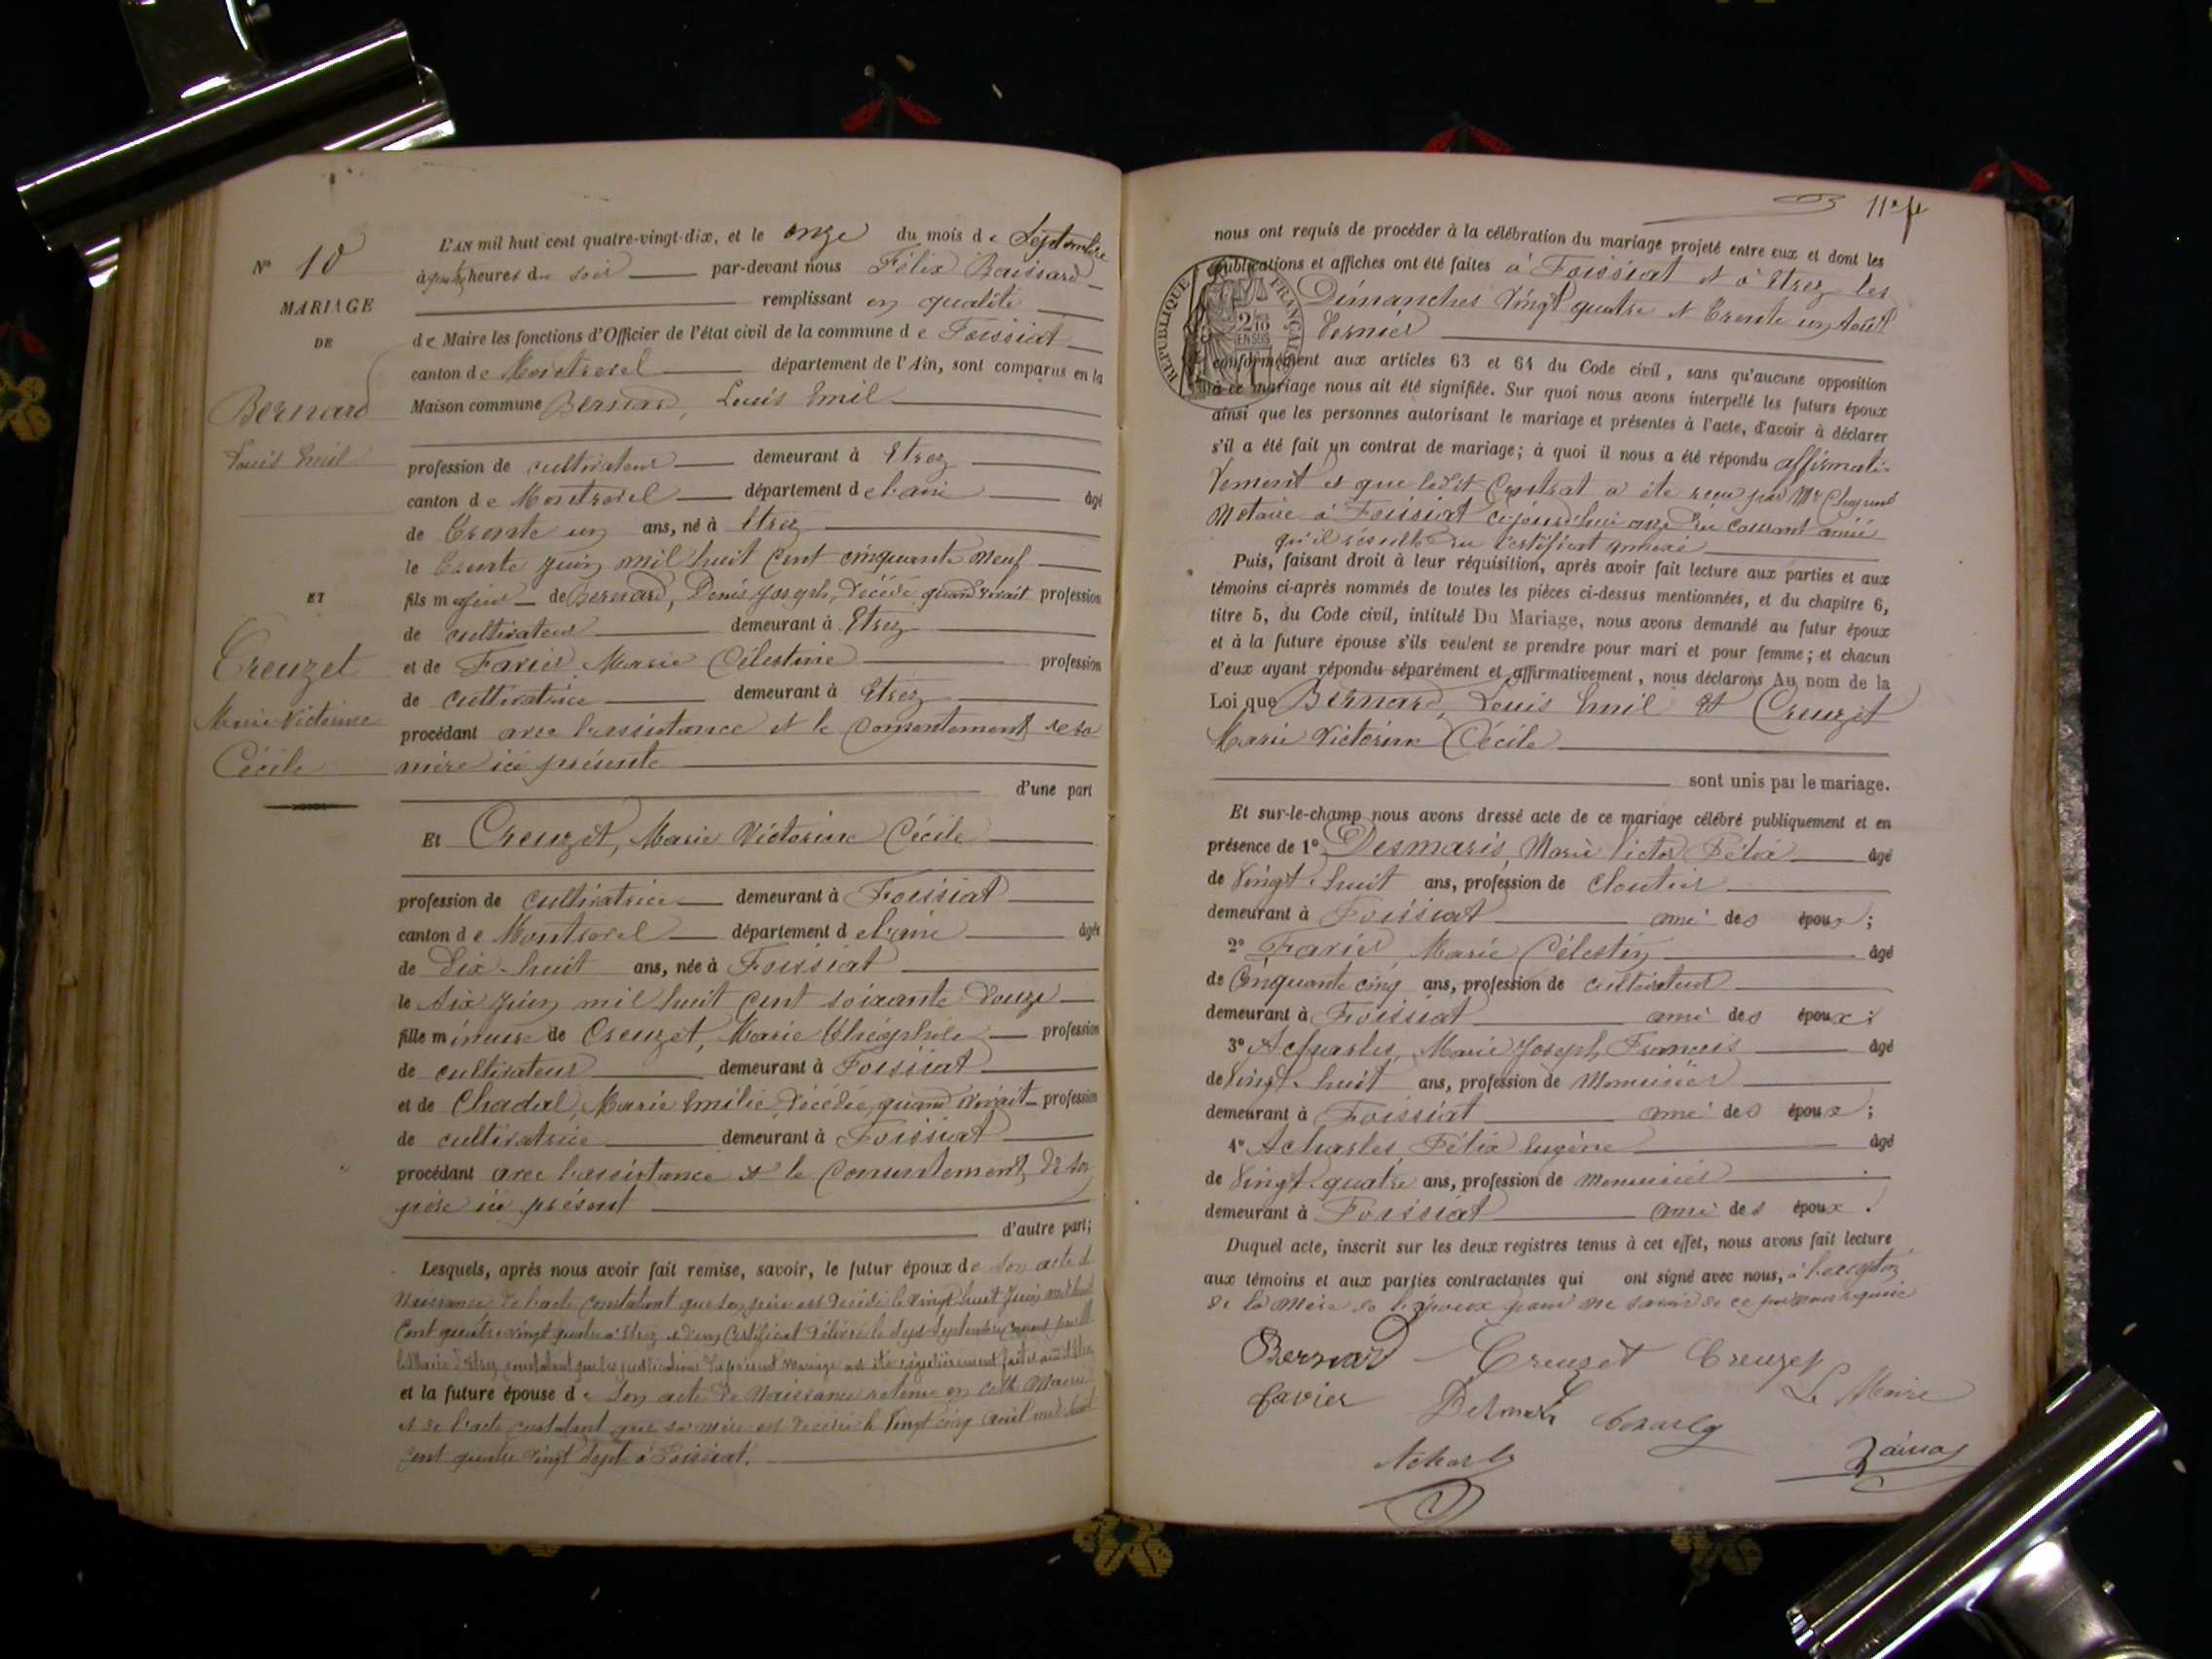 N° 10
MARIAGE
DE
Bernard
Louis Emil
ET
Creuzet
Marie Victorine
Cécile
L'AN mil huit cent quatre-vingt-dix, et le onze du mois de Septembre
à quatre heures du soir par-devant nous Félix
remplissant en qualité
de Maire les fonctions d'Officier de l'état civil de la commune de Foissiat
canton de Montrevel département de l'Ain, sont comparus en la
Maison commune Bernard, Louis Emil
profession de cultivateur demeurant à Etrez
canton de Montrevel département de l'ain âgé
de Trente un ans, né à Etrez
le Trente Juin mil huit Cent cinquante neuf
fils majeur de Bernard, Denis Joseph, décédé quand vivait profession
de cultivateur demeurant à Etrez
et de Favier, Marie Célestine profession
de cultivatrice demeurant à Etrez
procédant avec l'assistance et le Consentement de sa
mère ici présente
d'une part
Et Creuzet, Marie Victorine Cécile
profession de cultivatrice demeurant à Foissiat
canton de Montrevel département de l'ain âgée
de Dix-huit ans, née à Foissiat
le Six Juin mil huit Cent soixante Douze
fille mineure de Creuzet, Marie Théophile profession
de cultivateur demeurant à Foissiat
et de Chadal, Marie Emilie, décédée, quand vivait profession
de cultivatrice demeurant à Foissiat
procédant avec l'assistance et le Consentement de son
père ici présent
d'autre part;
Lesquels, après nous avoir fait remise, savoir, le futur époux de son acte de
Naissance de l'acte constatant que son père est décédé le vingt huit Juin mil huit
Cent quatre vingt quatre à Etrez et d'un Certificat délivré le Sept Septembre courant par
le Maire d'Etrez constatant que les publications du présent Mariage ont été régulièrement faites audit Etrez
et la future épouse de son acte de Naissance retenu en cette Mairie
et de l'acte constatant que sa mère est décédée le Vingt cinq Avril mil huit
cent quatre vingt Sept à Foissiat.
11e f
nous ont requis de procéder à la célébration du mariage projeté entre eux et dont les
publications et affiches ont été faites à Foissiat et à Etrez les
Dimanches Vingt quatre et Trente un Août
Dernier
REPUBLIQUE FRANÇAISE
2/10 EN SUS
conformément aux articles 63 et 64 du Code civil, sans qu'aucune opposition
à ce mariage nous ait été signifiée. Sur quoi nous avons interpellé les futurs époux
ainsi que les personnes autorisant le mariage et présentes à l'acte, d'avoir à déclarer
s'il a été fait un contrat de mariage; à quoi il nous a été répondu affirmati-
vement et que ledit Contrat a été reçu par Mr
Notaire à Foissiat cejourd'hui onze du courant ainsi
qu'il résulte du Certificat annexé
Puis, faisant droit à leur réquisition, après avoir fait lecture aux parties et aux
témoins ci-après nommés de toutes les pièces ci-dessus mentionnées, et du chapitre 6,
titre 5, du Code civil, intitulé Du Mariage, nous avons demandé au futur époux
et à la future épouse s'ils veulent se prendre pour mari et pour femme; et chacun
d'eux ayant répondu séparément et affirmativement, nous déclarons Au nom de la
Loi que Bernard, Louis Emil et Creuzet
Marie Victorine Cécile
sont unis par le mariage.
Et sur-le-champ nous avons dressé acte de ce mariage célébré publiquement et en
présence de 1° Desmaris, Marie Victor Félix âgé
de Vingt-huit ans, profession de Cloutier
demeurant à Foissiat ami des époux;
2° Favier, Marie Célestin âgé
de Cinquante cinq ans, profession de cultivateur
demeurant à Foissiat ami des époux;
3° Acharles, Marie Joseph Francois âgé
de Vingt-huit ans, profession de Menuisier
demeurant à Foissiat ami des époux;
4° Acharles, Félix Eugène âgé
de Vingt-quatre ans, profession de Menuisier
demeurant à Foissiat ami des époux.
Duquel acte, inscrit sur les deux registres tenus à cet effet, nous avons fait lecture
aux témoins et aux parties contractantes qui ont signé avec nous, à l'exception
de la Mère de l'époux pour ne savoir de ce par nous requise
Bernard Creuzet Creuzet
Favier Le Maire